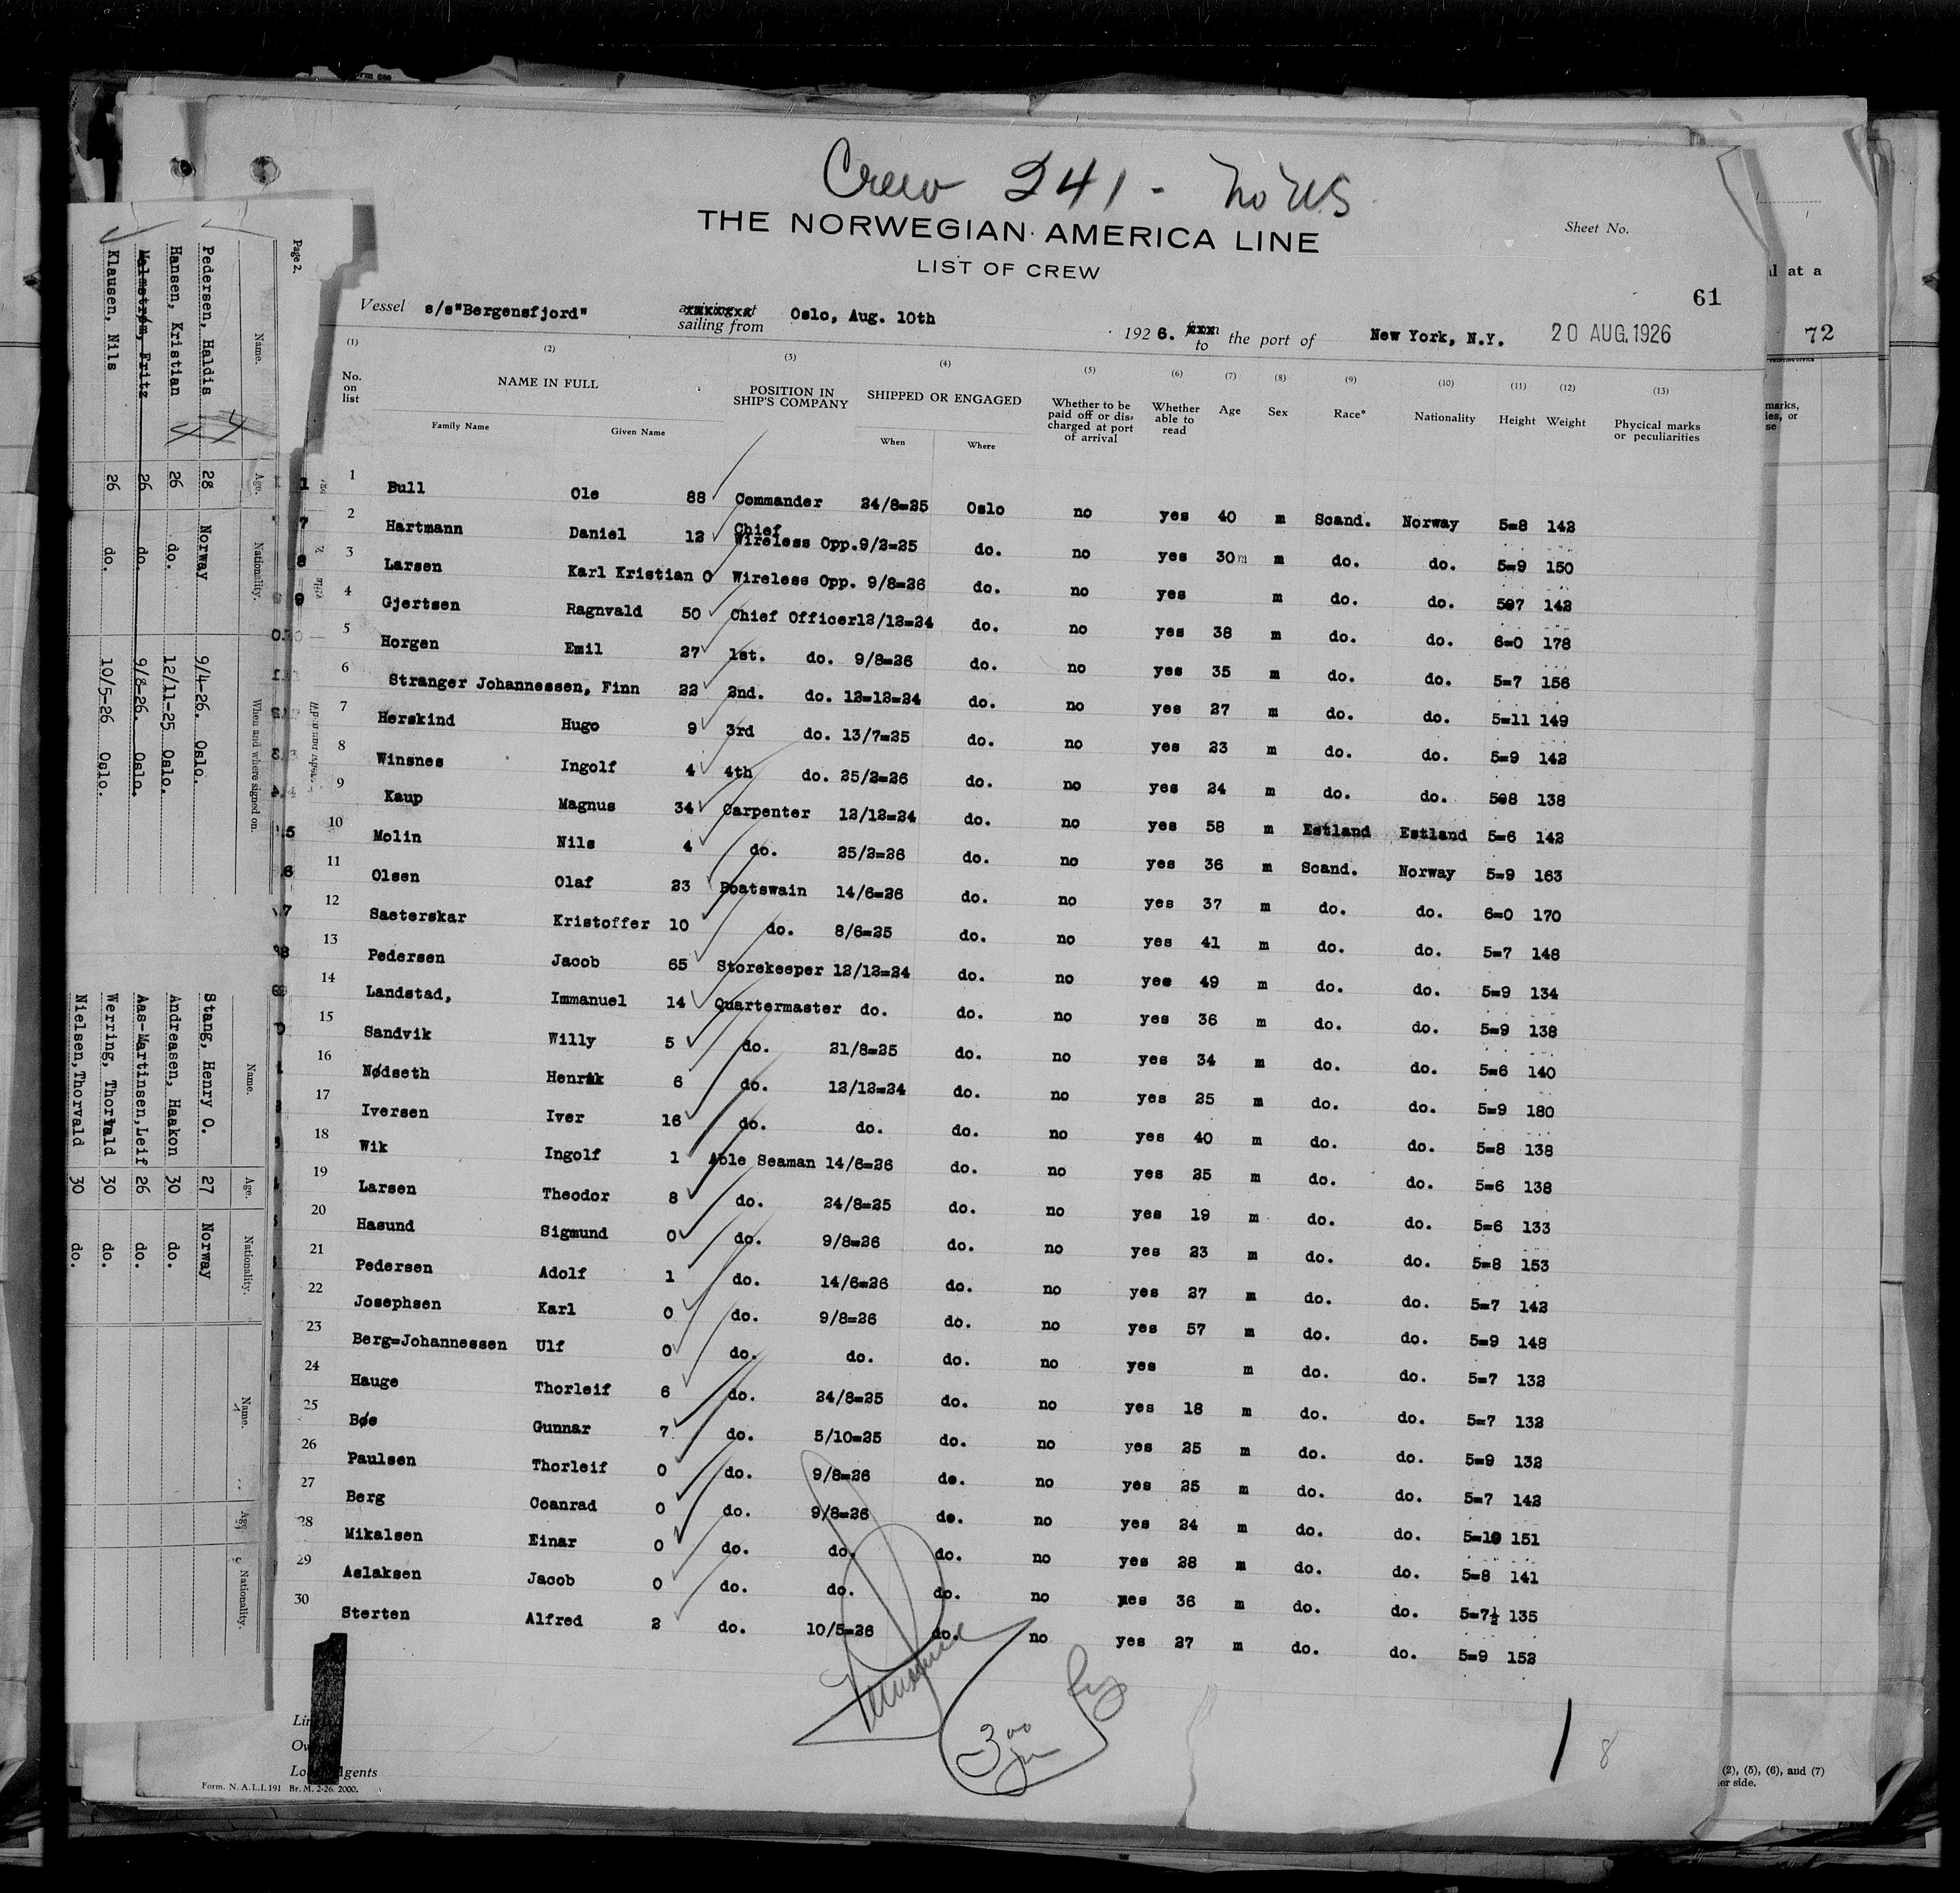 Crew 241 - No US
THE NORWEGIAN AMERICA LINE
LIST OF CREW
Sheet No.
61
Vessel s/s"Bergensfjord" sailing from Oslo, Aug. 10th 1926. to the port of New York, N.Y. 20 AUG. 1926
(1) (2) (3) (4) (5) (6) (7) (8) (9) (10) (11) (12) (13)
No. on list NAME IN FULL POSITION IN SHIP'S COMPANY SHIPPED OR ENGAGED Whether to be paid off or dis= charged at port of arrival Whether able to read Age Sex Race* Nationality Height Weight Phycical marks or peculiarities
Family Name Given Name When Where
1 Bull Ole 88 Commander 24/8=25 Oslo no yes 40 m Scand. Norway 5=8 142
2 Hartmann Daniel 12 Chief Wireless Opp. 9/2=25 do. no yes 30 m m do. do. 5=9 150
3 Larsen Karl Kristian 0 Wireless Opp. 9/8=26 do. no yes m do. do. 507 142
4 Gjertsen Ragnvald 50 Chief Officer 12/12=24 do. no yes 38 m do. do. 6=0 178
5 Horgen Emil 27 1st. do. 9/8=26 do. no yes 35 m do. do. 5=7 156
6 Stranger Johannessen, Finn 22 2nd. do. 12=12=24 do. no yes 27 m do. do. 5=11 149
7 Herskind Hugo 9 3rd do. 13/7=25 do. no yes 23 m do. do. 5=9 142
8 Winsnes Ingolf 4 4th do. 25/2=26 do. no yes 24 m do. do. 508 138
9 Kaup Magnus 34 Carpenter 12/12=24 do. no yes 58 m Estland Estland 5=6 142
10 Molin Nils 4 do. 25/2=26 do. no yes 36 m Scand. Norway 5=9 163
11 Olsen Olaf 23 Boatswain 14/6=26 do. no yes 37 m do. do. 6=0 170
12 Saeterskar Kristoffer 10 do. 8/6=25 do. no yes 41 m do. do. 5=7 148
13 Pedersen Jacob 65 Storekeeper 12/12=24 do. no yes 49 m do. do. 5=9 134
14 Landstad, Immanuel 14 Quartermaster do. do. no yes 36 m do. do. 5=9 138
15 Sandvik Willy 5 do. 21/8=25 do. no yes 34 m do. do. 5=6 140
16 Nødseth Henrik 6 do. 12/12=24 do. no yes 25 m do. do. 5=9 180
17 Iversen Iver 16 do. do. do. no yes 40 m do. do. 5=8 138
18 Wik Ingolf 1 Able Seaman 14/6=26 do. no yes 25 m do. do. 5=6 138
19 Larsen Theodor 8 do. 24/8=25 do. no yes 19 m do. do. 5=6 133
20 Hasund Sigmund 0 do. 9/8=26 do. no yes 23 m do. do. 5=8 153
21 Pedersen Adolf 1 do. 14/6=26 do. no yes 27 m do. do. 5=7 142
22 Josephsen Karl 0 do. 9/8=26 do. no yes 57 m do. do. 5=9 148
23 Berg=Johannessen Ulf 0 do. do. do. no yes m do. do. 5=7 132
24 Hauge Thorleif 6 do. 24/8=25 do. no yes 18 m do. do. 5=7 132
25 Bøe Gunnar 7 do. 5/10=25 do. no yes 25 m do. do. 5=9 132
26 Paulsen Thorleif 0 do. 9/8=26 do. no yes 25 m do. do. 5=7 142
27 Berg Coanrad 0 do. 9/8=26 do. no yes 24 m do. do. 5=10 151
28 Mikalsen Einar 0 do. do. do. no yes 28 m do. do. 5=8 141
29 Aslaksen Jacob 0 do. do. do. no yes 36 m do. do. 5=7½ 135
30 Sterten Alfred 2 do. 10/5=26 do. no yes 27 m do. do. 5=9 152
Agents
Form. N. A. L. I. 191 Br. M. 2-26. 2000.
8
Page 2.
Name. Age. Nationality. When and where signed on.
Pedersen, Haldis 28 Norway 9/4-26. Oslo.
Hansen, Kristian 26 do. 12/11-25 Oslo.
Malmstrøm, Fritz 26 do. 9/8-26. Oslo.
Klausen, Nils 26 do. 10/5-26 Oslo.
Name. Age. Nationality.
Stang, Henry O. 27 Norway
Andreasen, Haakon 30 do.
Aas-Martinsen, Leif 26 do.
Werring, Thorvald 30 do.
Nielsen, Thorvald 30 do.
Name. Age. Nationality.
al at a
72
marks,
ies, or
se
(2), (5), (6), and (7)
er side.